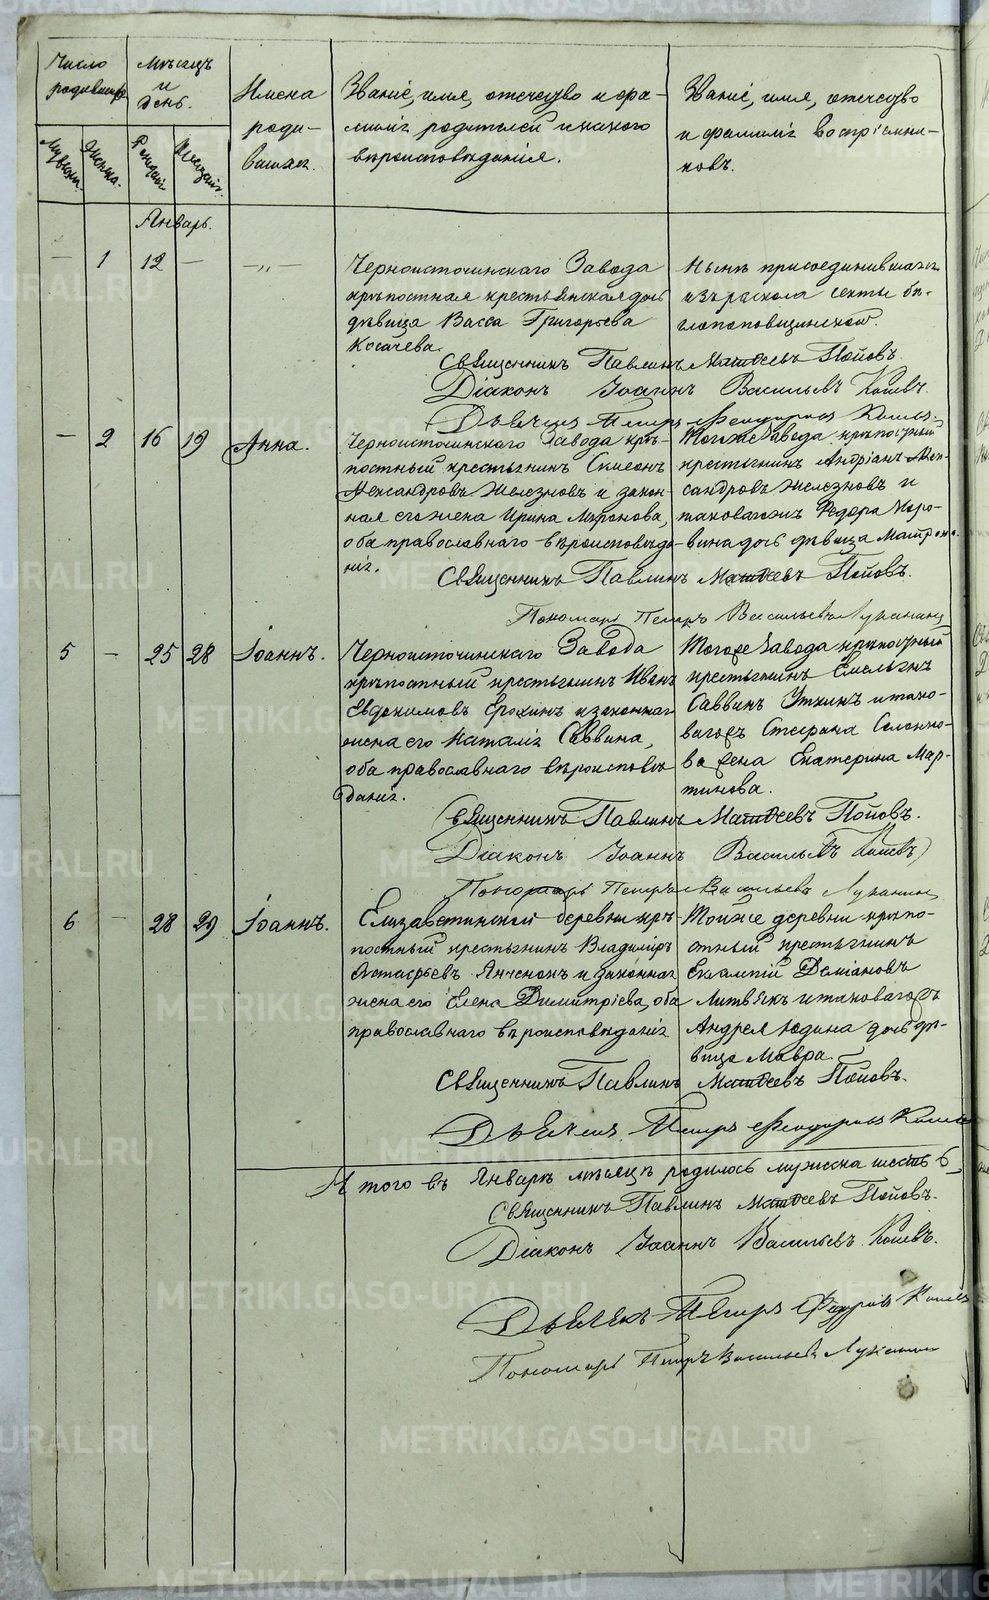 Число родившихся
Мѣсяцъ и день.
Имена родившихся.
Званіе, имя, отечество и фамилія родителей и какого вѣроисповѣданія.
Званіе, имя, отечество и фамилія воспріемниковъ.
Мужеска. Женска. Рожденія Крещенія
Январь.
— 1 12 — —„—
Черноисточинскаго Завода
крѣпостная крестьянская дочь
дѣвица Васса Григорьева
Косачева.
Нынѣ присоединившаяся
изъ раскола секты бѣ-
глопоповщинской.
Священникъ Павлинъ Матѳеевъ Поповъ.
Діаконъ Іоаннъ Васильевъ
Дьячекъ Петръ Феодоровъ
— 2 16 19 Анна.
Черноисточинскаго Завода крѣ-
постный крестьянинъ Симеонъ
Александровъ Железновъ и закон-
ная его жена Ирина Миронова,
оба православнаго вѣроисповѣда-
нія.
Тогоже Завода крѣпостный
крестьянинъ Андріанъ Алек-
сандровъ Железновъ и
таковагожъ Федора Коро-
вина дочь дѣвица Матрона.
Священникъ Павлинъ Матѳеевъ Поповъ.
Пономарь Петръ Васильевъ Луканинъ
5 — 25 28 Іоаннъ.
Черноисточинскаго Завода
крѣпостный крестьянинъ Иванъ
Евдокимовъ Ерохинъ и законная
жена его Наталія Саввина,
оба православнаго вѣроисповѣ-
данія.
Тогоже Завода крѣпостный
крестьянинъ Емельянъ
Саввинъ Уткинъ и тако-
вагожъ Стефана
жена Екатерина Мар-
тинова.
Священникъ Павлинъ Матѳеевъ Поповъ.
Діаконъ Іоаннъ Васильевъ
Пономарь Петръ Васильевъ Луканинъ
6 — 28 29 Іоаннъ.
Елизаветинской деревни крѣ-
постный крестьянинъ Владиміръ
Астафьевъ и законная
жена его Елена Димитріева, оба
православнаго вѣроисповѣданія
Тойже деревни крѣпо-
стный крестьянинъ
Евлампій Деміановъ
Литвякъ и таковагожъ
Андрея Юдина дочь дѣ-
вица Мавра.
Священникъ Павлинъ Матѳеевъ Поповъ.
Дьячекъ Петръ Феодоровъ
Итого въ Январѣ мѣсяцѣ родилось мужеска шесть 6,
Священникъ Павлинъ Матѳеевъ Поповъ.
Діаконъ Іоаннъ Васильевъ
Дьячекъ Петръ Федоровъ
Пономарь Петръ Васильевъ Луканинъ
METRIKI.GASO-URAL.RU